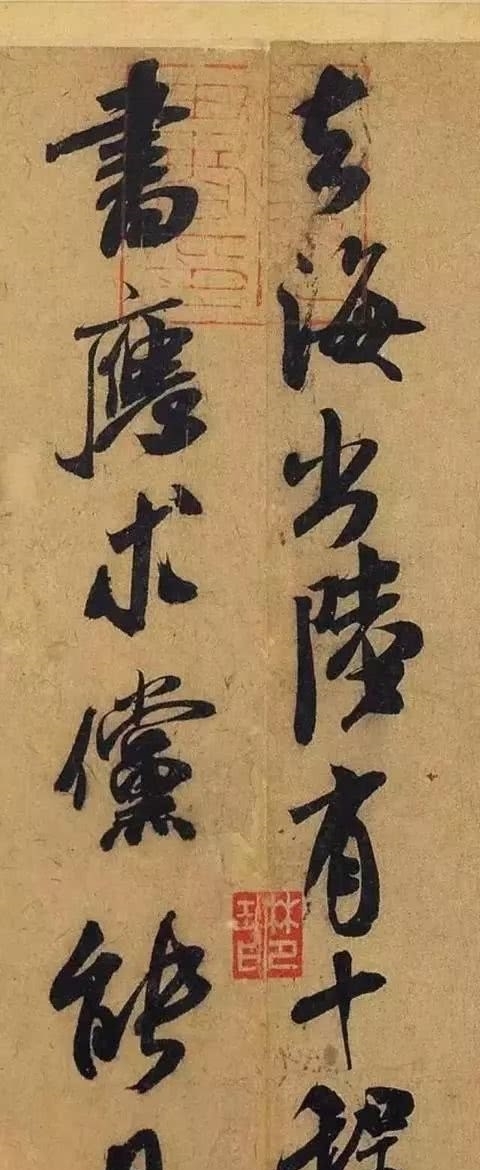 去海出陸有十程
書應求儻能